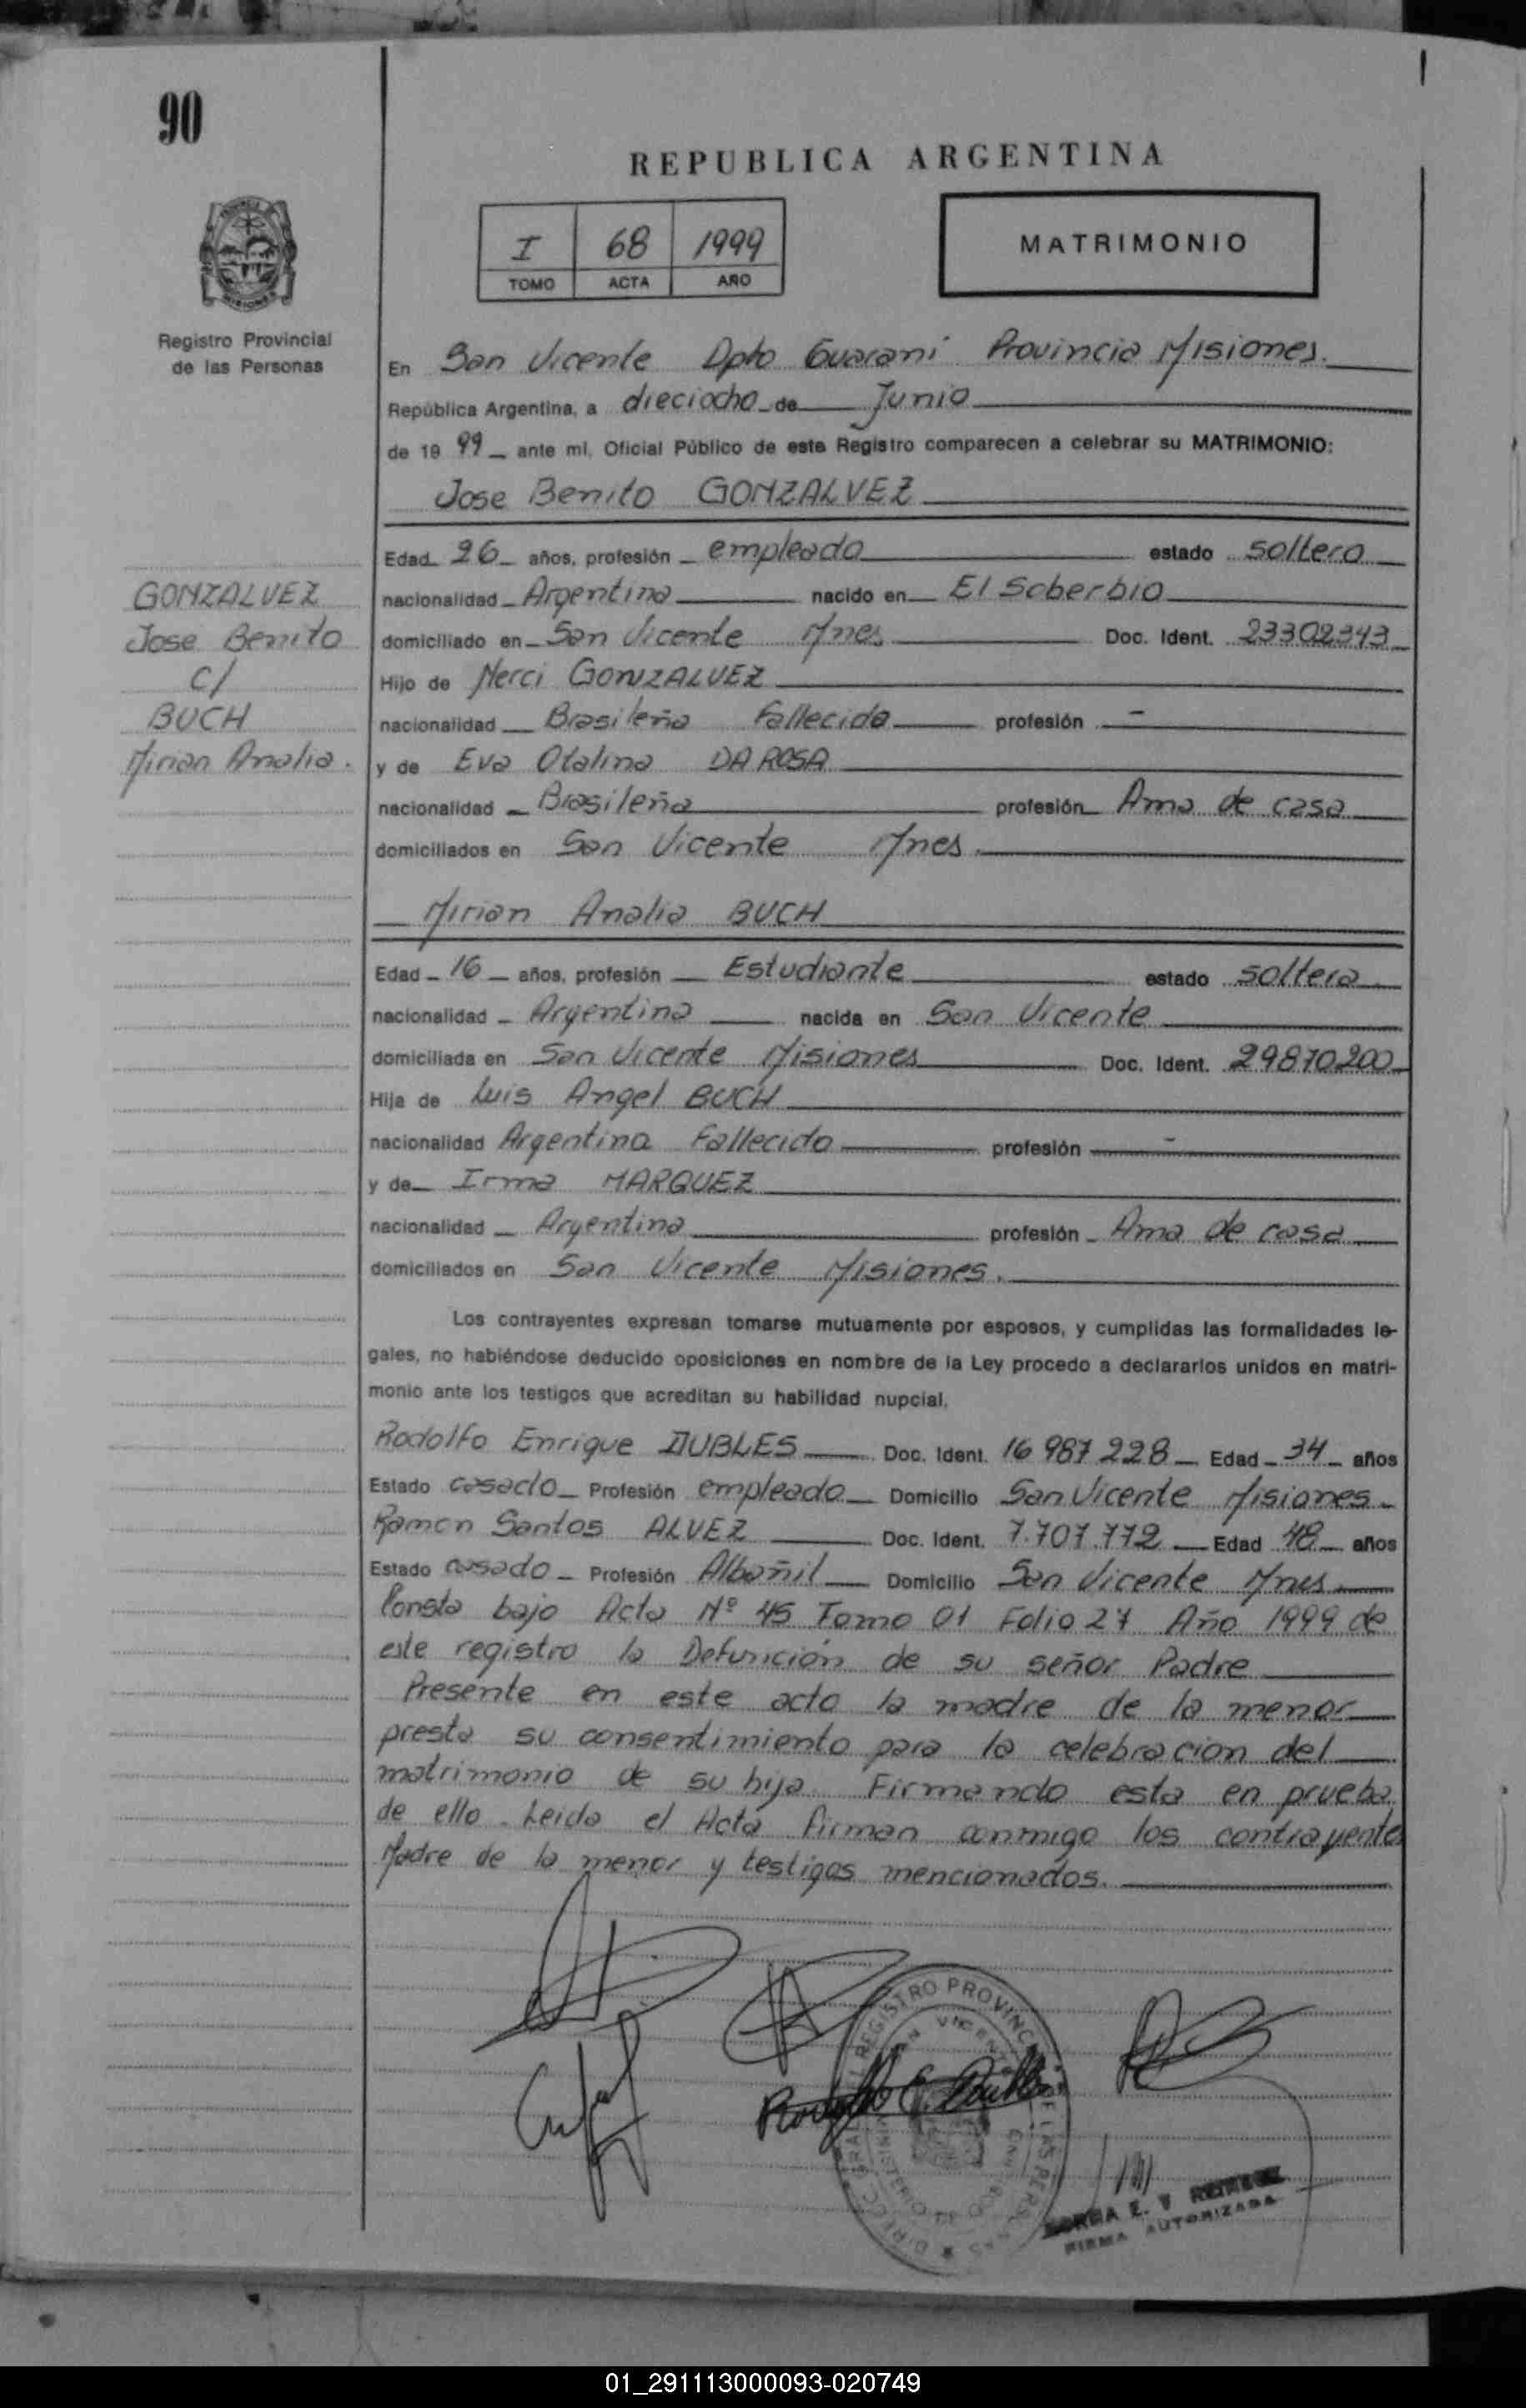 90
REPUBLICA ARGENTINA
I 68 1999
TOMO ACTA AÑO
MATRIMONIO
MISIONES
Registro Provincial
de las Personas
En San Vicente Dpto Guarani Provincia Misiones.
República Argentina, a dieciocho de Junio
de 19 99 ante mi, Oficial Público de este Registro comparecen a celebrar su MATRIMONIO:
Jose Benito GONZALVEZ
Edad 26 años, profesión empleado estado soltero
nacionalidad Argentina nacido en El Soberbio
domiciliado en San Vicente Mnes Doc. Ident. 23302343
Hijo de Nerci GONZALVEZ
nacionalidad Brasileña Fallecida profesión -
y de Eva Otalina DA ROSA
nacionalidad Brasileña profesión Ama de casa
domiciliados en San Vicente Mnes.
GONZALVEZ
Jose Benito
C/
BUCH
Mirian Analia.
Mirian Analia BUCH
Edad 16 años, profesión Estudiante estado soltera
nacionalidad Argentina nacida en San Vicente
domiciliada en San Vicente Misiones Doc. Ident. 29870200
Hija de Luis Angel BUCH
nacionalidad Argentina Fallecido profesión -
y de Irma MARQUEZ
nacionalidad Argentina profesión Ama de casa
domiciliados en San Vicente Misiones.
Los contrayentes expresan tomarse mutuamente por esposos, y cumplidas las formalidades le-
gales, no habiéndose deducido oposiciones en nombre de la Ley procedo a declararlos unidos en matri-
monio ante los testigos que acreditan su habilidad nupcial.
Rodolfo Enrique DUBLES Doc. Ident. 16 987 228 Edad 34 años
Estado casado Profesión empleado Domicilio San Vicente Misiones
Ramon Santos ALVEZ Doc. Ident. 7.707.772 Edad 48 años
Estado casado Profesión Albañil Domicilio San Vicente Mnes
Consta bajo Acta Nº 45 Tomo 01 Folio 27 Año 1999 de
este registro la Defunción de su señor Padre
Presente en este acto la madre de la menor
presta su consentimiento para la celebracion del
matrimonio de su hija Firmando esta en prueba
de ello. Leida el Acta firman conmigo los contrayente
Madre de la menor y testigos mencionados.
REGISTRO PROVINC
FIRMA AUTORIZADA
01_291113000093-020749